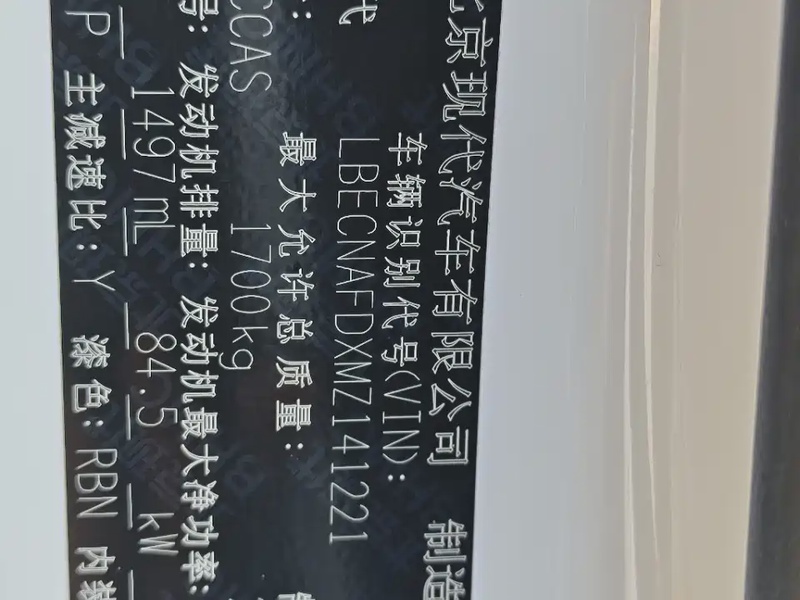 北京现代汽车有限公司 制造
车辆识别代号(VIN):
LBECNAFDXMZ141221
代
最大允许总质量:
1700kg
CCAS
号: 发动机排量: 发动机最大净功率:
1497mL 84.5 kW
P 主减速比: Y 漆色: RBN 内装